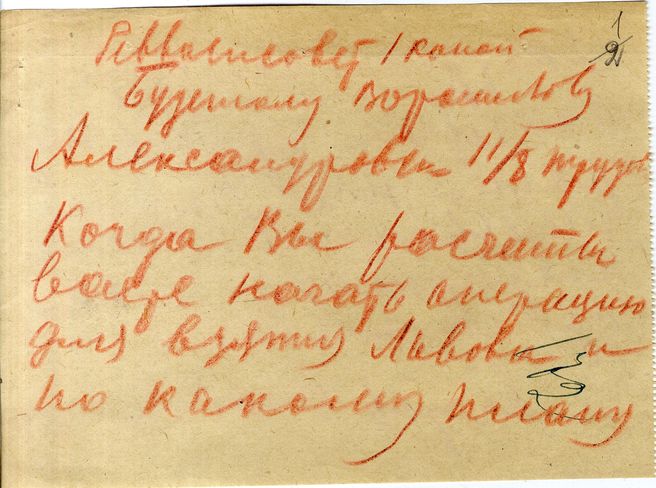 1
2
Реввоенсовет 1 конной
Буденному Ворошилову
Александровск 11/8
Когда Вы рассчиты
ваете начать операцию
для взятия Львова и
по какому плану